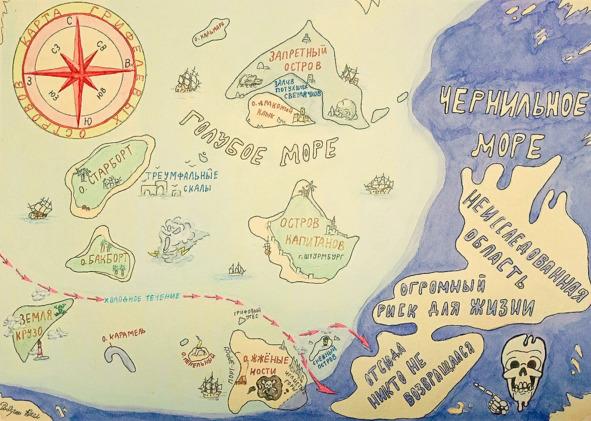 КАРТА ГРИФЕЛЕВЫХ
ОСТРОВОВ
С
СЗ
СВ
З
В
ЮЗ
ЮВ
Ю
О. КАЛЬМАР
ЗАПРЕТНЫЙ
ОСТРОВ
ЗАЛИВ
ПОТУХШИХ
СВЕТЛЯЧКОВ
О. ДРАКОНИЙ
КЛЫК
ГОЛУБОЕ МОРЕ
ЧЕРНИЛЬНОЕ
МОРЕ
О. СТАРБОРТ
ТРЕУМФАЛЬНЫЕ
СКАЛЫ
ОСТРОВ
КАПИТАНОВ
Г. ШТОРМБУРГ
НЕИССЛЕДОВАННАЯ
ОБЛАСТЬ
О. БАКБОРТ
ХОЛОДНОЕ ТЕЧЕНИЕ
ОГРОМНЫЙ
РИСК ДЛЯ ЖИЗНИ
ЗЕМЛЯ
КРУЗО
О. КАРАМЕЛЬ
ГРИФОВЫЙ
УТЁС
О. ЖЖЁНЫЕ
КОСТИ
ОСТРОВ
ОТСЮДА
НИКТО НЕ
ВОЗВРАЩАЛСЯ